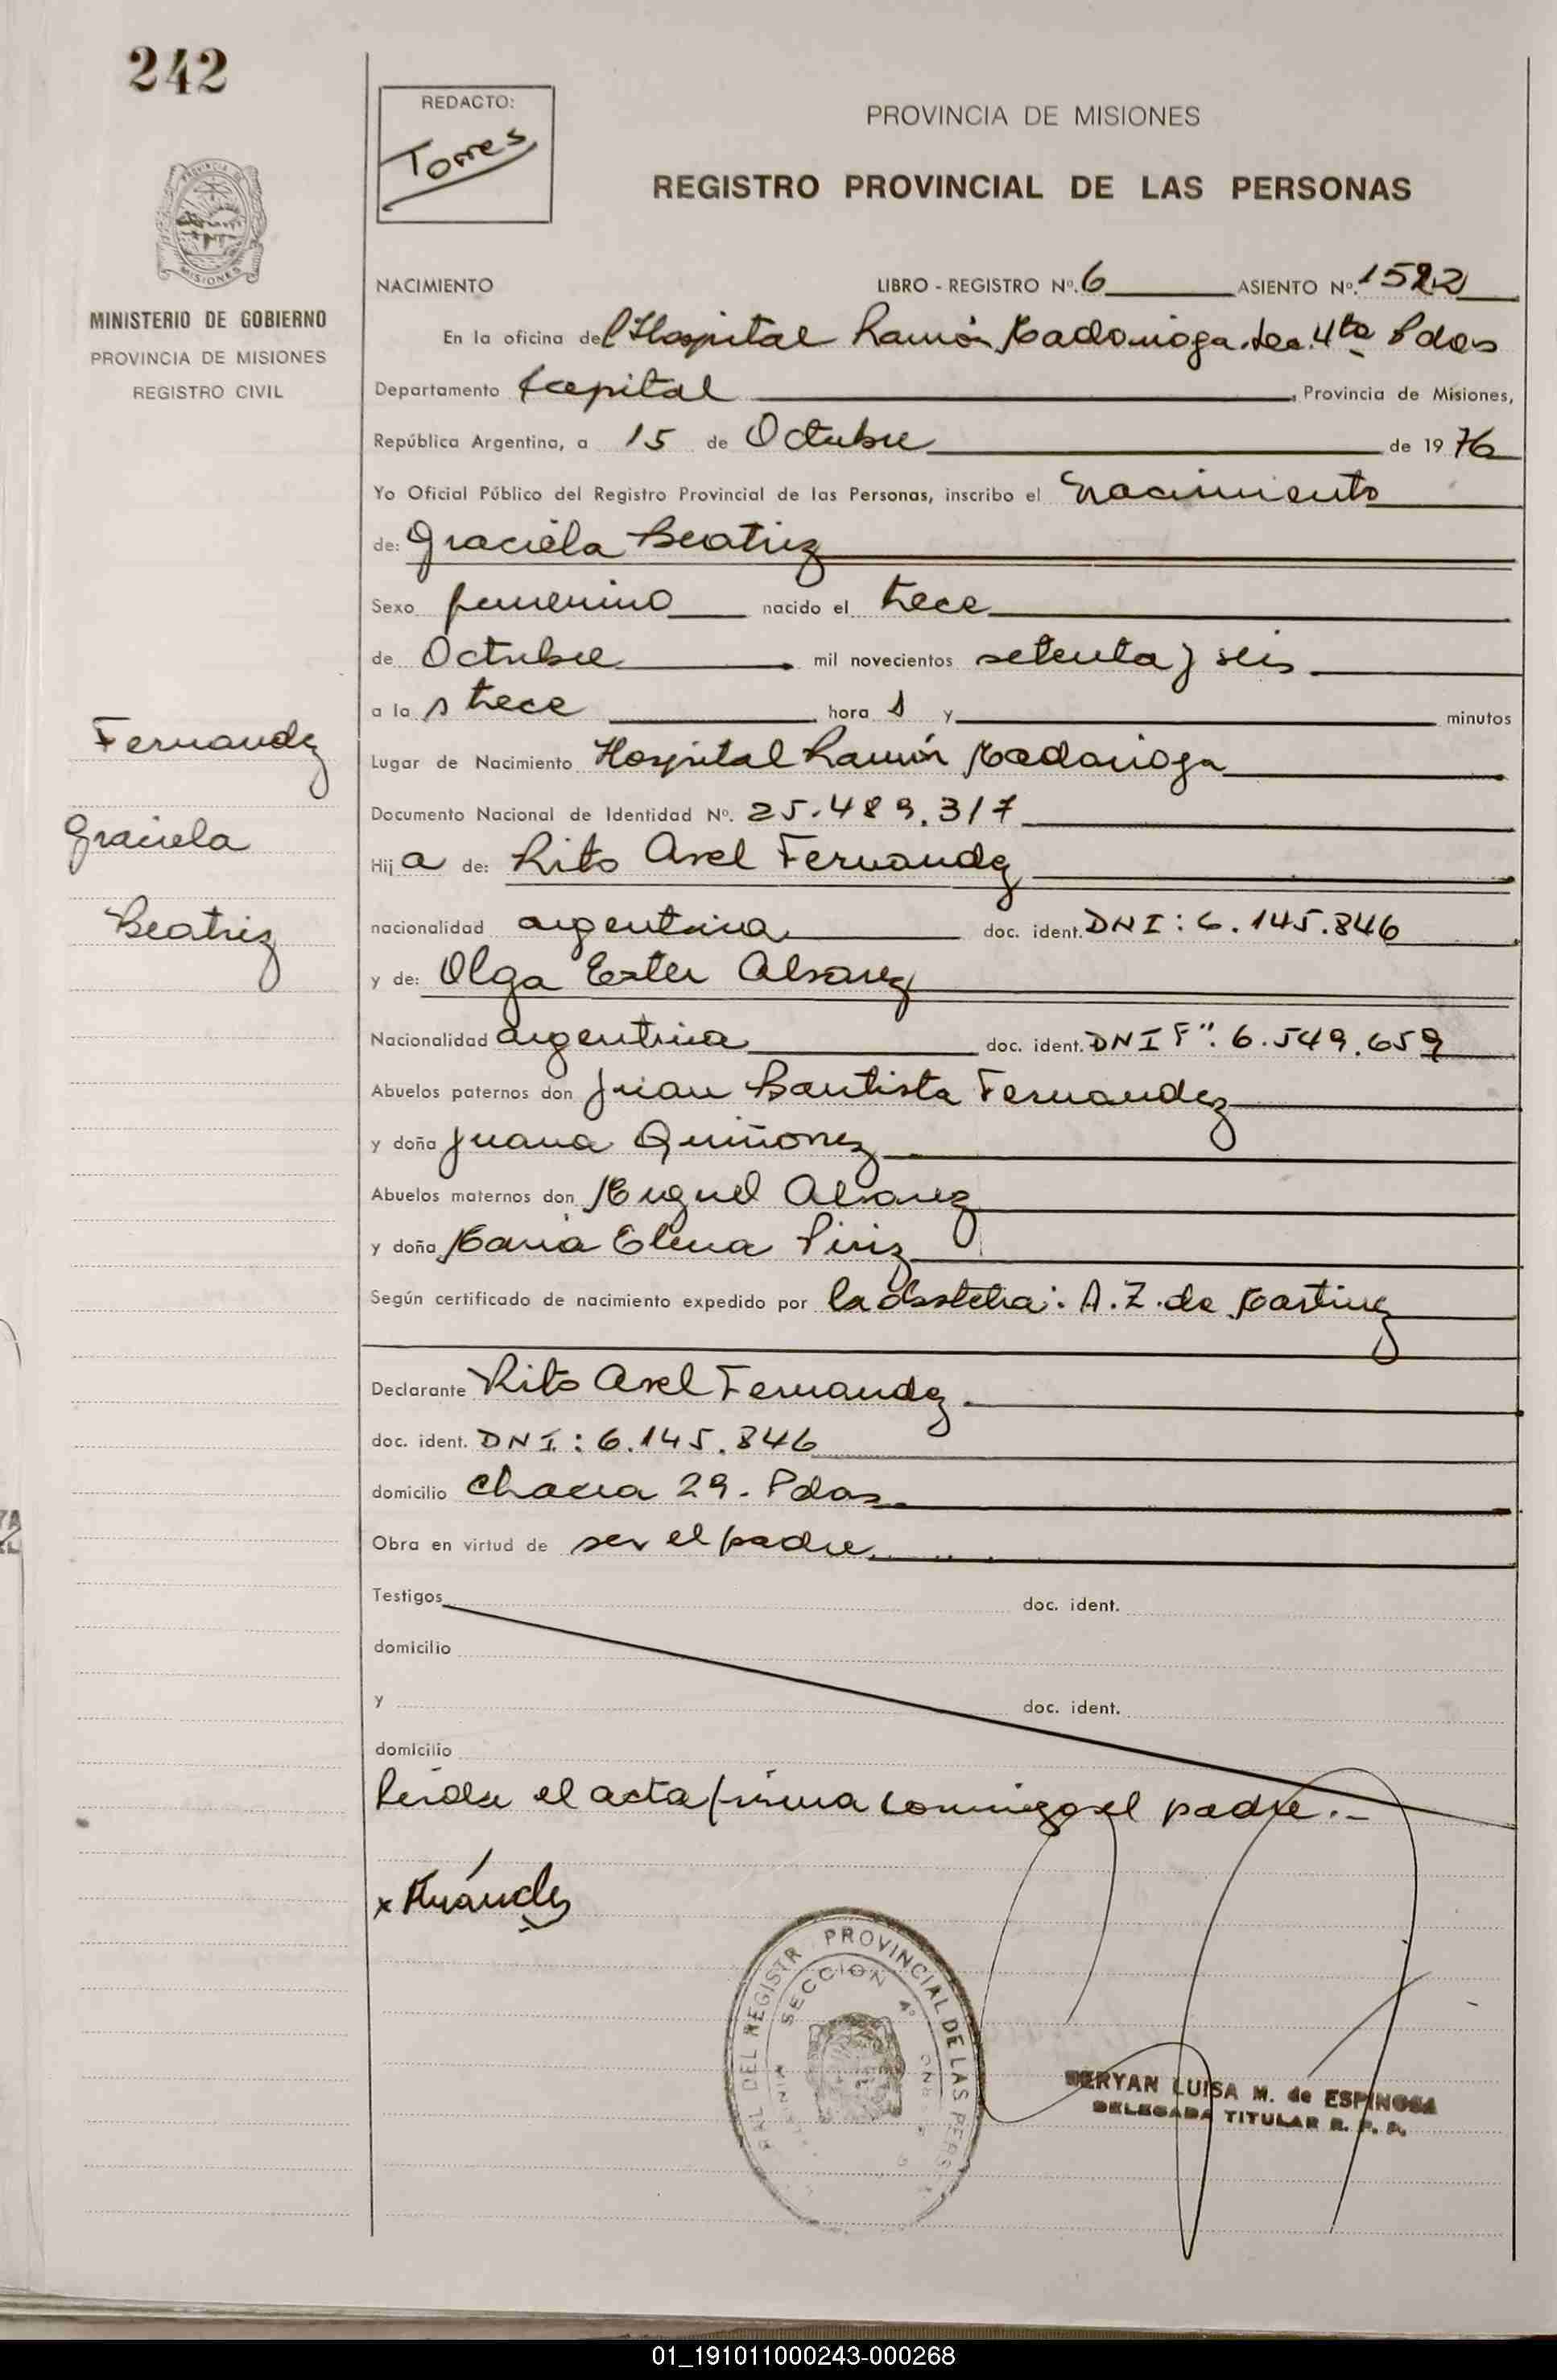 242
REDACTO:
Torres
PROVINCIA DE MISIONES
REGISTRO PROVINCIAL DE LAS PERSONAS
MISIONES
MINISTERIO DE GOBIERNO
PROVINCIA DE MISIONES
REGISTRO CIVIL
NACIMIENTO LIBRO - REGISTRO Nº. 6 ASIENTO Nº. 1522
En la oficina del Hospital Ramón Madariaga. Sec. 4ta Pdas
Departamento Capital, Provincia de Misiones,
República Argentina, a 15 de Octubre de 1976
Yo Oficial Público del Registro Provincial de las Personas, inscribo el Nacimiento
de: Graciela Beatriz
Sexo femenino nacido el trece
de Octubre mil novecientos setenta y seis
a las trece horas y minutos
Lugar de Nacimiento Hospital Ramón Madariaga
Documento Nacional de Identidad Nº. 25.489.317
Hija de: Rito Axel Fernandez
nacionalidad argentina doc. ident. DNI: 6.145.846
y de: Olga Ester Alvarez
Nacionalidad argentina doc. ident. DNI F": 6.549.659
Abuelos paternos don Juan Bautista Fernandez
y doña Juana Quiñonez
Abuelos maternos don Miguel Alvarez
y doña Maria Elena Piriz
Según certificado de nacimiento expedido por la obstetra: A.Z. de Martinez
Declarante Rito Axel Fernandez
doc. ident. DNI: 6.145.846
domicilio Chacra 29. Pdas.
Obra en virtud de ser el padre
Testigos doc. ident.
domicilio
y doc. ident.
domicilio
Leída el acta firma conmigo el padre.-
Fernandez
Graciela
Beatriz
x Fernández
DEL REGISTR PROVINCIAL DE LAS PERS
SECCION 4º
MERYAN LUISA M. de ESPINOSA
DELEGADA TITULAR R. P. P.
01_191011000243-000268